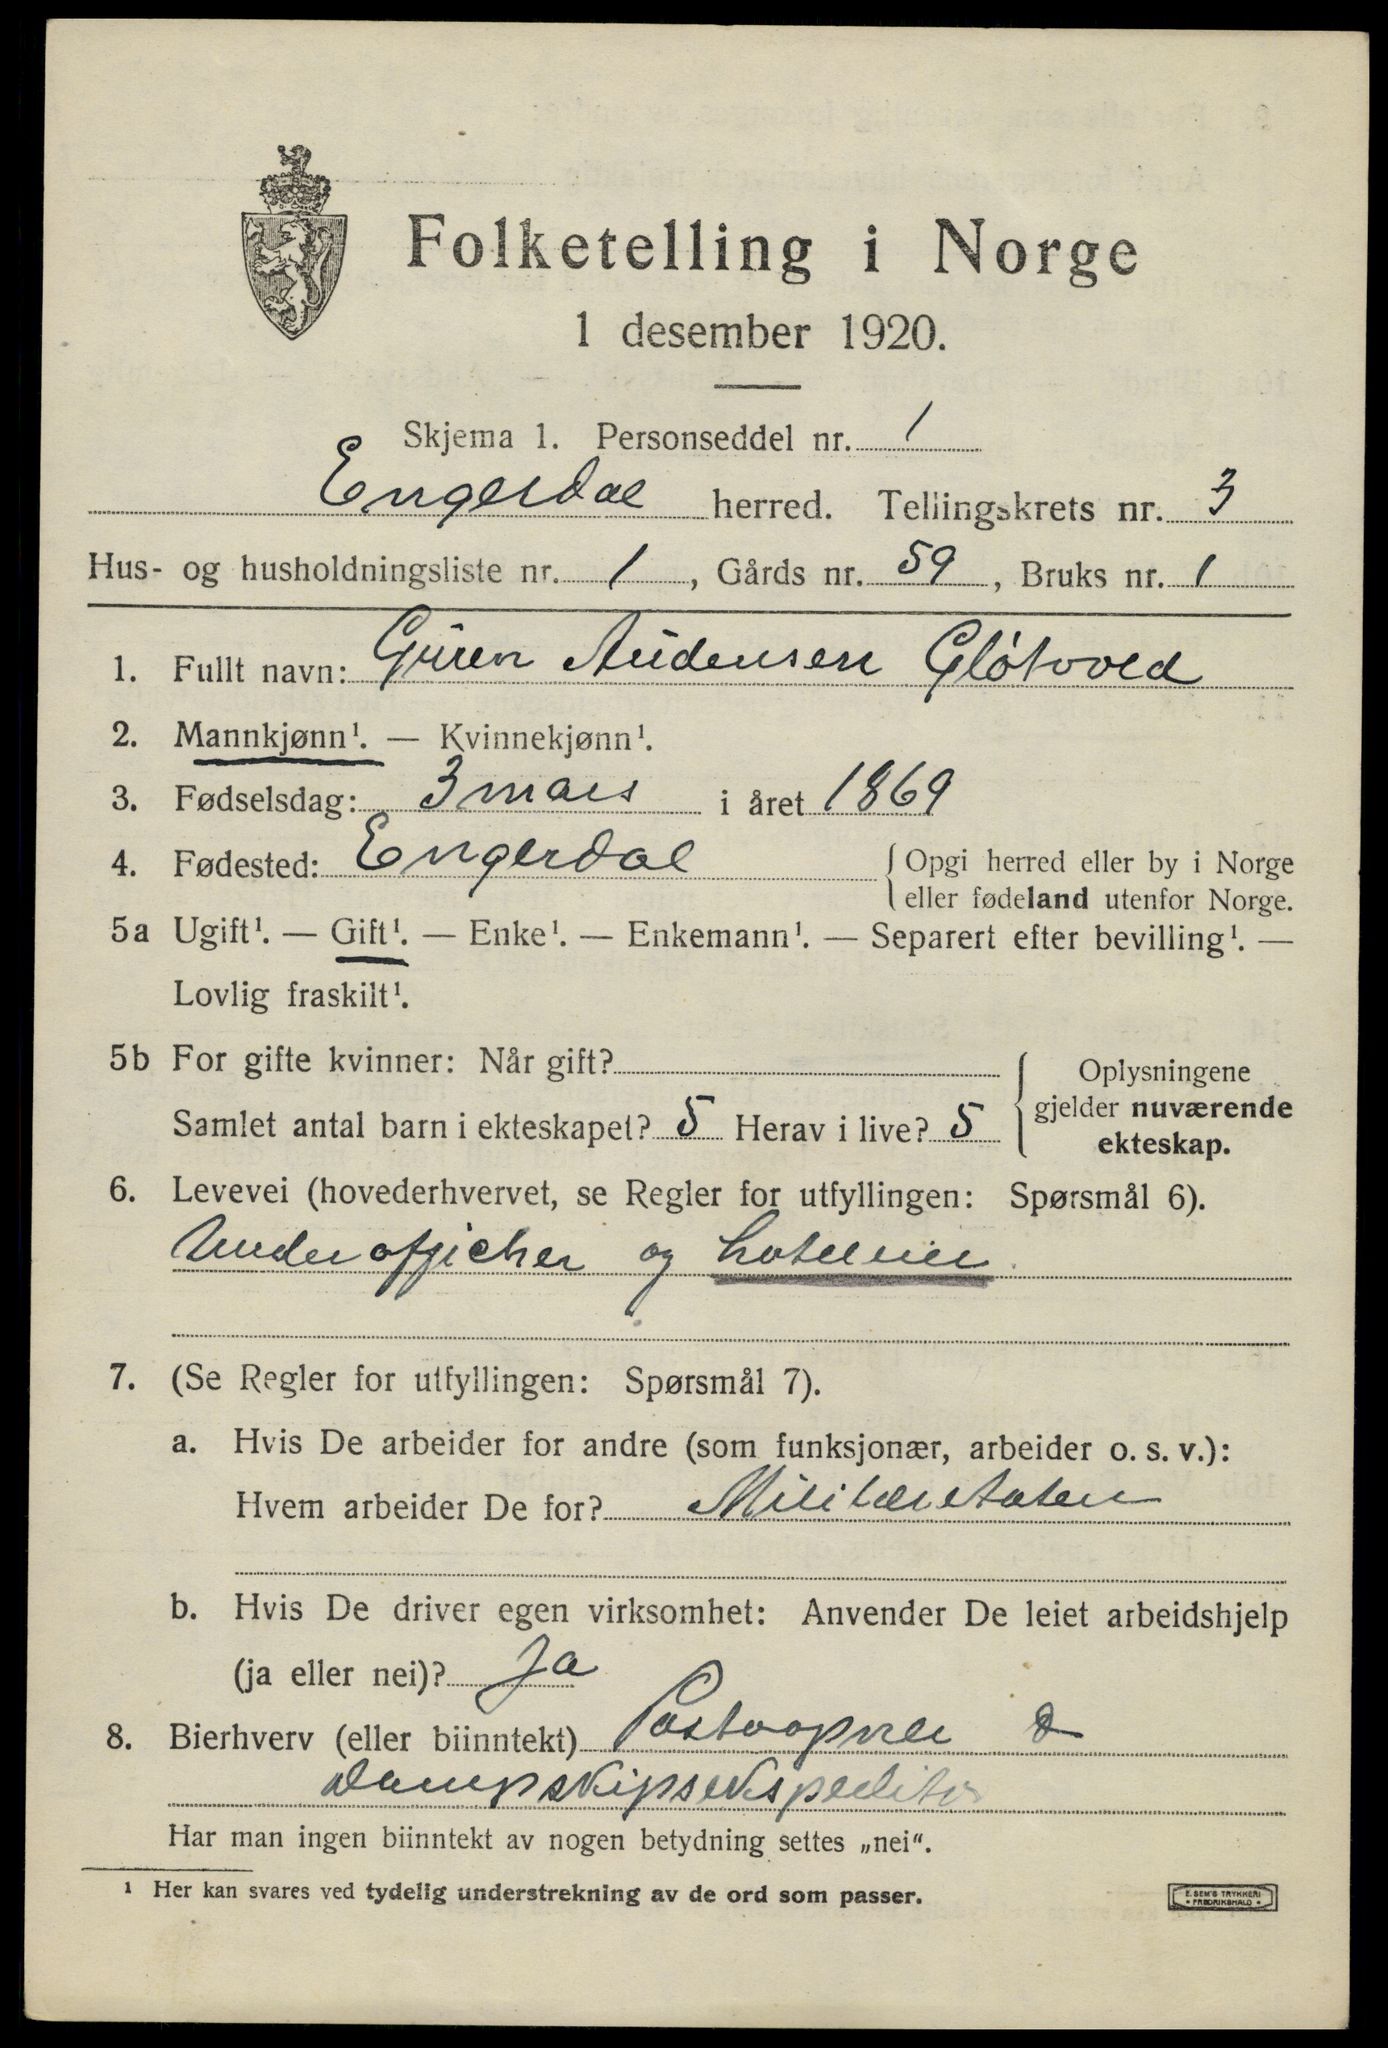 Folketelling i Norge
1 desember 1920.
Skjema 1. Personseddel nr. 1
Engerdal herred. Tellingskrets nr. 3
Hus- og husholdningsliste nr. 1, Gårds nr. 59, Bruks nr. 1
1. Fullt navn: Audensen Gløtvold
2. Mannkjønn¹. — Kvinnekjønn¹.
3. Fødselsdag: 3 mars i året 1869
4. Fødested: Engerdal
Opgi herred eller by i Norge
eller fødeland utenfor Norge.
5a Ugift¹. — Gift¹. — Enke¹. — Enkemann¹. — Separert efter bevilling¹. —
Lovlig fraskilt¹.
5b For gifte kvinner: Når gift?
Samlet antal barn i ekteskapet? 5 Herav i live? 5
Oplysningene
gjelder nuværende
ekteskap.
6. Levevei (hovederhvervet, se Regler for utfyllingen: Spørsmål 6).
Underofficher og hoteleier.
7. (Se Regler for utfyllingen: Spørsmål 7).
a. Hvis De arbeider for andre (som funksjonær, arbeider o. s. v.):
Hvem arbeider De for? Militæretaten
b. Hvis De driver egen virksomhet: Anvender De leiet arbeidshjelp
(ja eller nei)? Ja
8. Bierhverv (eller biinntekt) Postaapner &
Dampskipsekspeditør
Har man ingen biinntekt av nogen betydning settes „nei“.
¹ Her kan svares ved tydelig understrekning av de ord som passer.
E. SEM'S TRYKKERI
• FREDRIKSHALD •